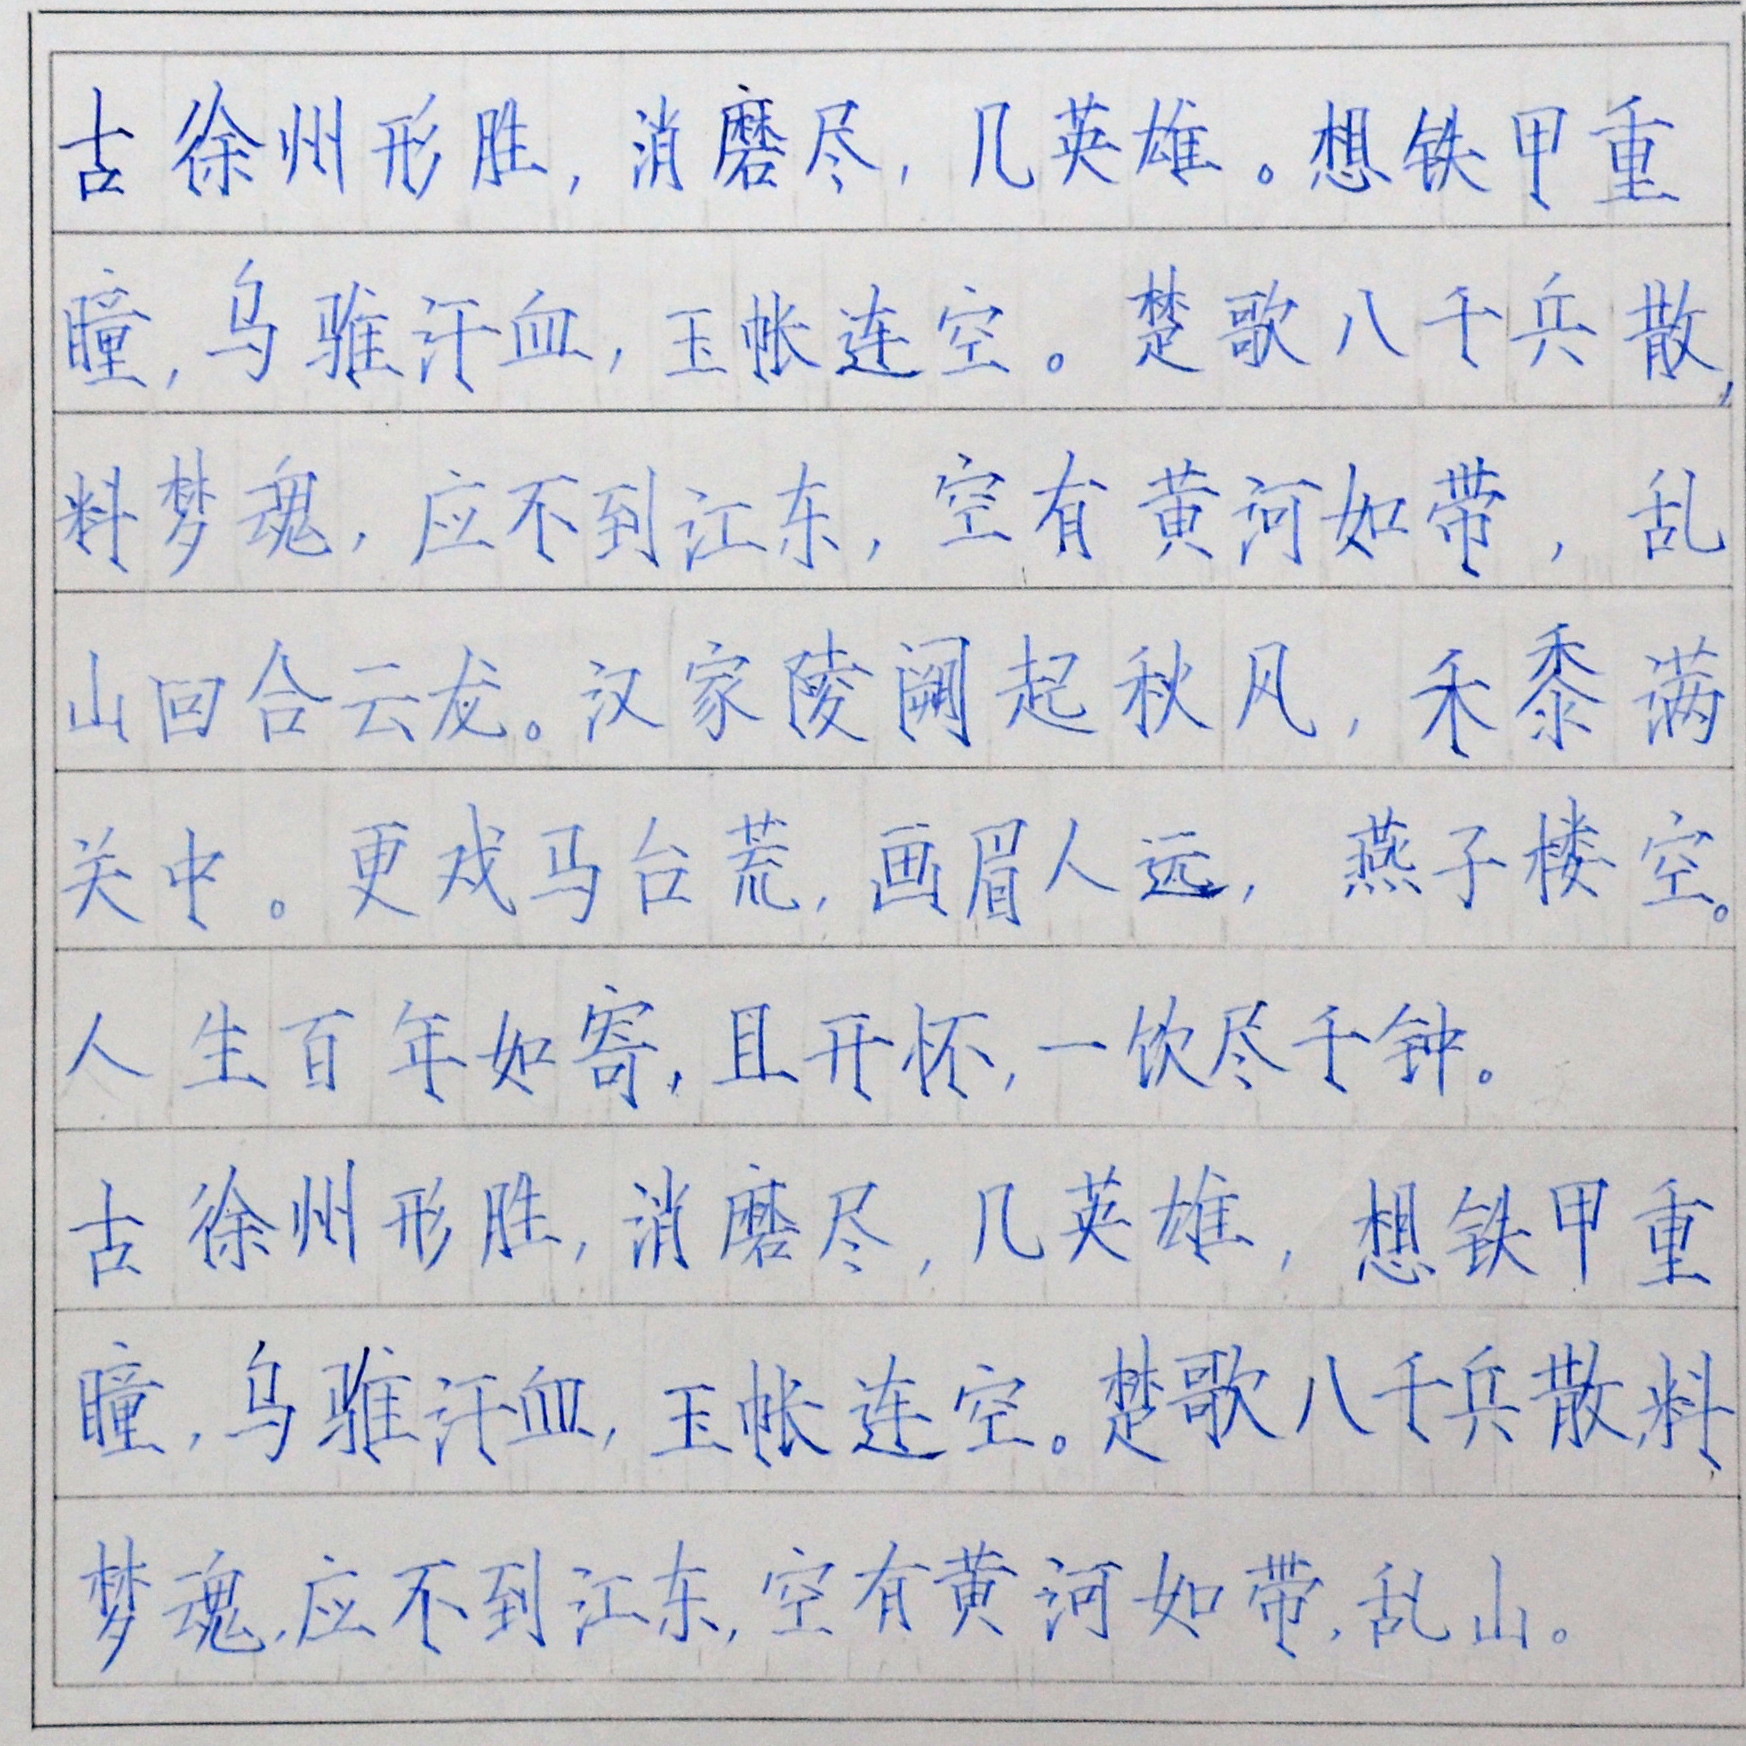 古徐州形胜，消磨尽，几英雄。想铁甲重
瞳，乌骓汗血，玉帐连空。楚歌八千兵散，
料梦魂，应不到江东，空有黄河如带，乱
山回合云龙。汉家陵阙起秋风，禾黍满
关中。更戏马台荒，画眉人远，燕子楼空。
人生百年如寄，且开怀，一饮尽千钟。
古徐州形胜，消磨尽，几英雄，想铁甲重
瞳，乌骓汗血，玉帐连空。楚歌八千兵散，料
梦魂，应不到江东，空有黄河如带，乱山。